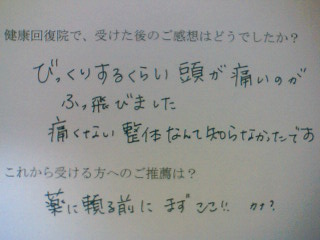 健康回復院で、受けた後のご感想はどうでしたか？
びっくりするくらい 頭が痛いのが
ふっ飛びました
痛くない 整体なんて知らなかたです
これから受ける方へのご推薦は？
薬に頼る前に まずここ!! かな？